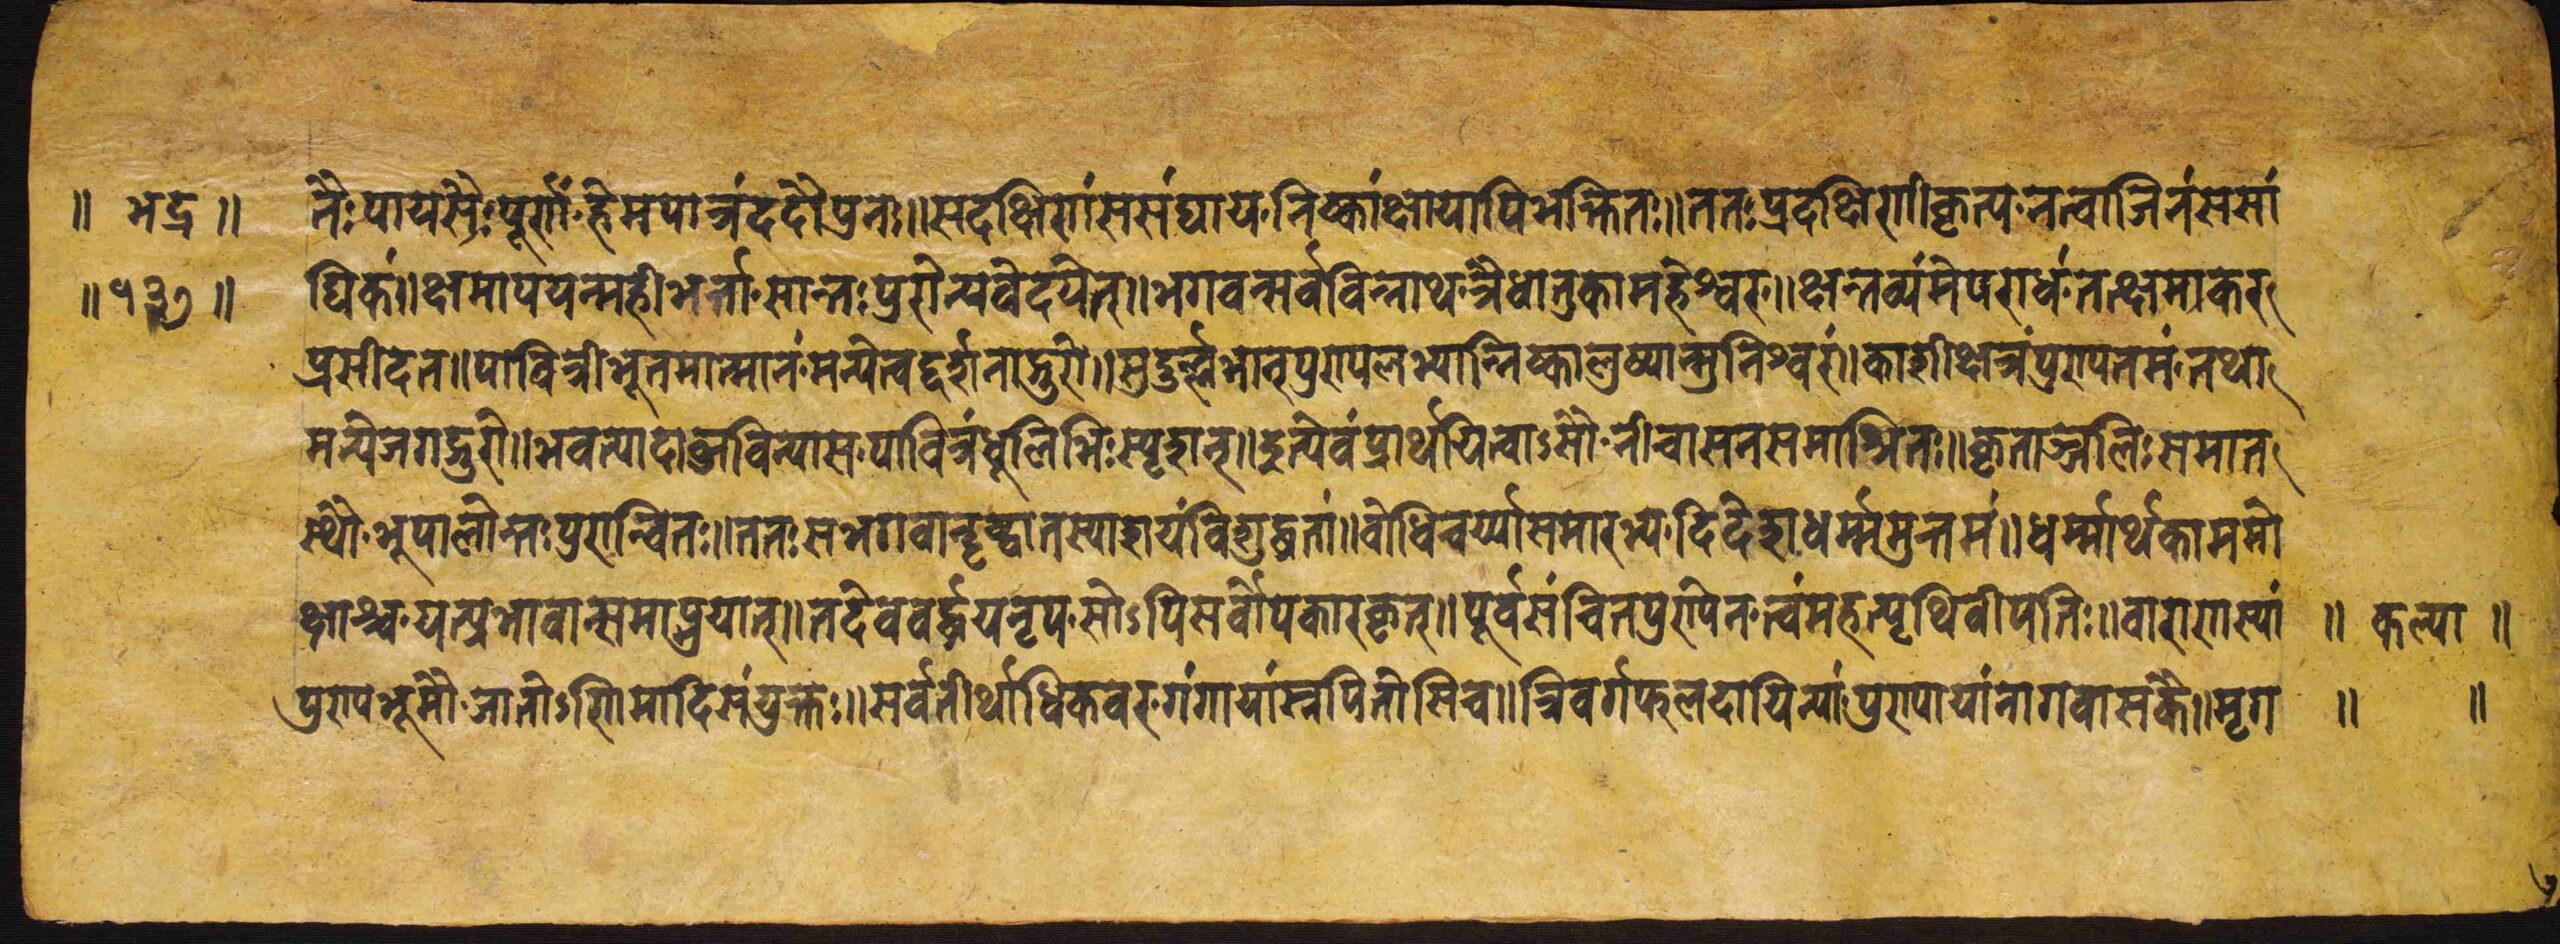 ॥ भद्र ॥ नैः पायसैः पूर्णां हेमपात्रं ददौ पुनः॥ सदक्षिणां ससंघाय निष्कांक्षायापि भक्तितः॥ ततः प्रदक्षिणीकृत्य नत्वा जिनं ससां
॥ १३७ ॥ घिकं॥ क्षमापयन्महीभर्त्ता सान्तःपुरो न्यवेदयेत्॥ भगवन्सर्वविन्नाथ त्रैधातुकामहेश्वर॥ क्षन्तव्यं मेपराधं तत्क्षमाकर
प्रसीदत॥ पावित्रीभूतमात्मानं मन्ये त्वद्दर्शनाद्गुरो॥ सुदुर्ल्लभात् पुण्यलभ्यान्निष्कालुष्यान्मुनिश्वरं॥ काशीक्षात्रं पुण्यतमं तथा
मन्ये जगद्गुरो॥ भवत्पादाब्जविन्यास पावित्रं धूलिभिः स्पृशन्॥ इत्येवं प्रार्थयित्वाऽसौ नीचासनसमाश्रितः॥ कृताञ्जलिः समात
स्थौ भूपालोन्तःपुरान्वितः॥ ततः स भगवान्दृष्ट्वा तस्याशयं विशुद्धतां॥ बोधिचर्य्यासमारभ्य दिदेश धर्म्ममुत्तमं॥ धर्म्मार्थकाममो
क्षाश्च यत्प्रभावान्समाप्नुयात्॥ तदेव वर्द्धय नृप सोऽपि सर्वोपकारकृत्॥ पूर्वसंचितपुण्येन त्वं महत्पृथिवीपतिः॥ वाराणस्यां ॥ कल्या ॥
पुण्यभूमौ जातोऽणिमादिसंयुक्तः॥ सर्वतीर्थाधिकवर गंगायां स्नपितोसि च॥ त्रिवर्गफलदायिन्यां पुण्यायां नागवासकै॥ मृग ॥ ॥